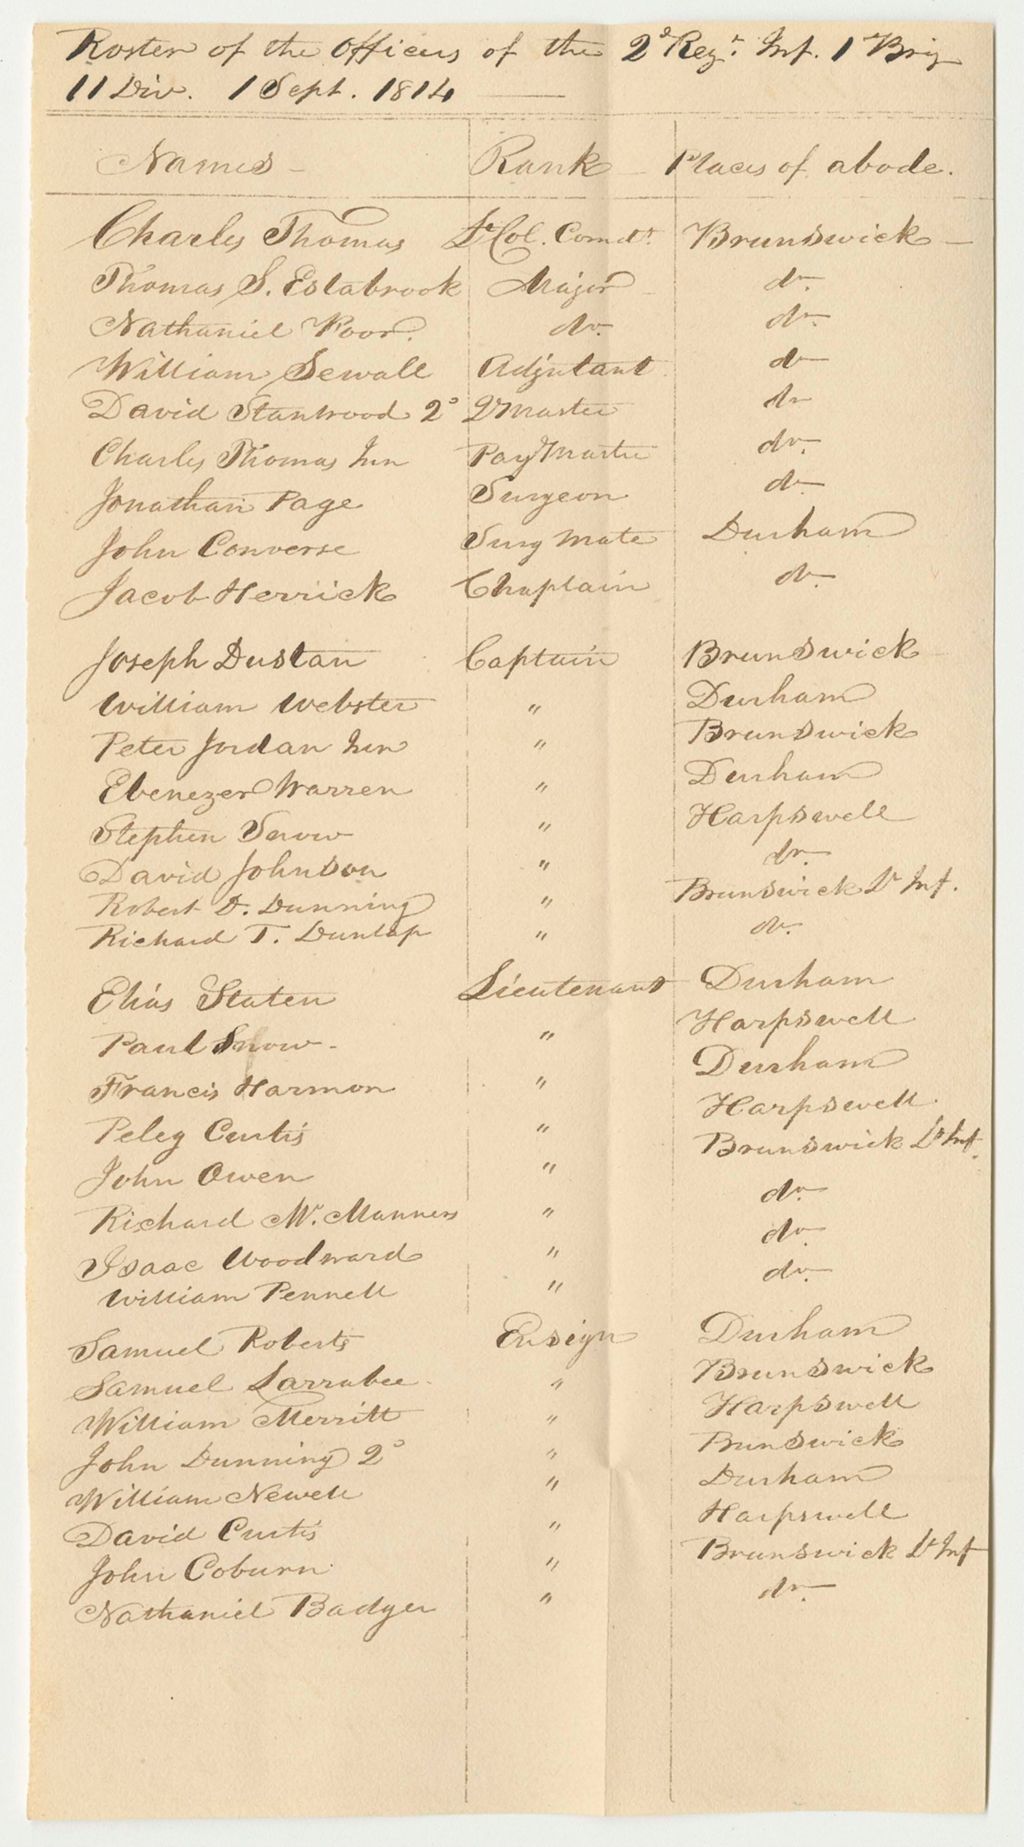 Roster of the Officers of the 2d Regt. Inf. 1 Brig
11 Div. 1 Sept. 1814
Names - Rank Places of abode.
Charles Thomas Lt Col. Comdt. Brunswick
Thomas S. Estabrook Major do.
Nathaniel Poor. do. do.
William Sewall Adjutant do
David Stanwood 2d Qr Master do
Charles Thomas Jun Pay Master do.
Jonathan Page Surgeon do.
John Converse Surg Mate Durham
Jacob Herrick Chaplain do.
Joseph Dustan Captain Brunswick
William Webster " Durham
Peter Jordan Jun " Brunswick
Ebenezer Warren " Durham
Stephen Snow " Harpswell
David Johnson " do.
Robert D. Dunning " Brunswick Lt Inf.
Richard T. Dunlap " do.
Elias Staten Lieutenant Durham
Paul Snow - " Harpswell
Francis Harmon " Durham
Peleg Curtis " Harpswell.
John Owen " Brunswick Lt Inf.
Richard Mc. Manners " do.
Isaac Woodward " do.
William Pennell " do.
Samuel Roberts Ensign Durham
Samuel Larrabee " Brunswick
William Merritt " Harpswell
John Dunning 2d " Brunswick
William Newell " Durham
David Curtis " Harpswell
John Coburn " Brunswick Lt Inf
Nathaniel Badger " do.